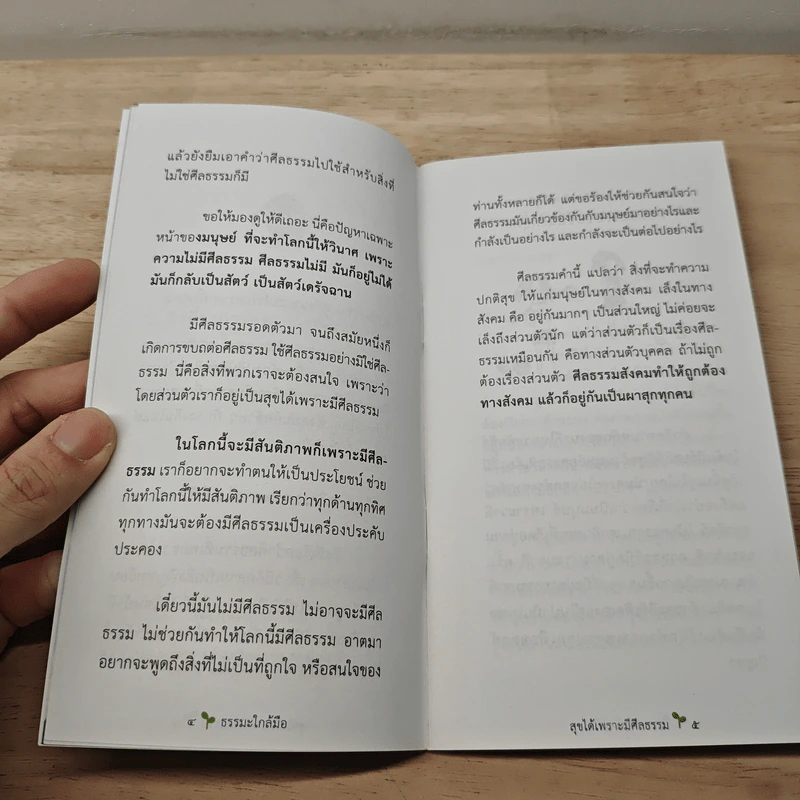 แล้วยังยืมเอาคำว่าศีลธรรมไปใช้สำหรับสิ่งที่
ไม่ใช่ศีลธรรมก็มี
ขอให้มองดูให้ดีเถอะ นี่คือปัญหาเฉพาะ
หน้าของมนุษย์ ที่จะทำโลกนี้ให้วินาศ เพราะ
ความไม่มีศีลธรรม ศีลธรรมไม่มี มันก็อยู่ไม่ได้
มันก็กลับเป็นสัตว์ เป็นสัตว์เดรัจฉาน
มีศีลธรรมรอดตัวมา จนถึงสมัยหนึ่งก็
เกิดการขบถต่อศีลธรรม ใช้ศีลธรรมอย่างมิใช่ศีล-
ธรรม นี่คือสิ่งที่พวกเราจะต้องสนใจ เพราะว่า
โดยส่วนตัวเราก็อยู่เป็นสุขได้เพราะมีศีลธรรม
ในโลกนี้จะมีสันติภาพก็เพราะมีศีล-
ธรรม เราก็อยากจะทำตนให้เป็นประโยชน์ ช่วย
กันทำโลกนี้ให้มีสันติภาพ เรียกว่าทุกด้านทุกทิศ
ทุกทางมันจะต้องมีศีลธรรมเป็นเครื่องประคับ
ประคอง
เดี๋ยวนี้มันไม่มีศีลธรรม ไม่อาจจะมีศีล
ธรรม ไม่ช่วยกันทำให้โลกนี้มีศีลธรรม อาตมา
อยากจะพูดถึงสิ่งที่ไม่เป็นที่ถูกใจ หรือสนใจของ
๔ ธรรมะใกล้มือ
ท่านทั้งหลายก็ได้ แต่ขอร้องให้ช่วยกันสนใจว่า
ศีลธรรมมันเกี่ยวข้องกันกับมนุษย์มาอย่างไรและ
กำลังเป็นอย่างไร และกำลังจะเป็นต่อไปอย่างไร
ศีลธรรมคำนี้ แปลว่า สิ่งที่จะทำความ
ปกติสุข ให้แก่มนุษย์ในทางสังคม เล็งในทาง
สังคม คือ อยู่กันมากๆ เป็นส่วนใหญ่ ไม่ค่อยจะ
เล็งถึงส่วนตัวนัก แต่ว่าส่วนตัวก็เป็นเรื่องศีล-
ธรรมเหมือนกัน คือทางส่วนตัวบุคคล ถ้าไม่ถูก
ต้องเรื่องส่วนตัว ศีลธรรมสังคมทำให้ถูกต้อง
ทางสังคม แล้วก็อยู่กันเป็นผาสุกทุกคน
สุขได้เพราะมีศีลธรรม ๕